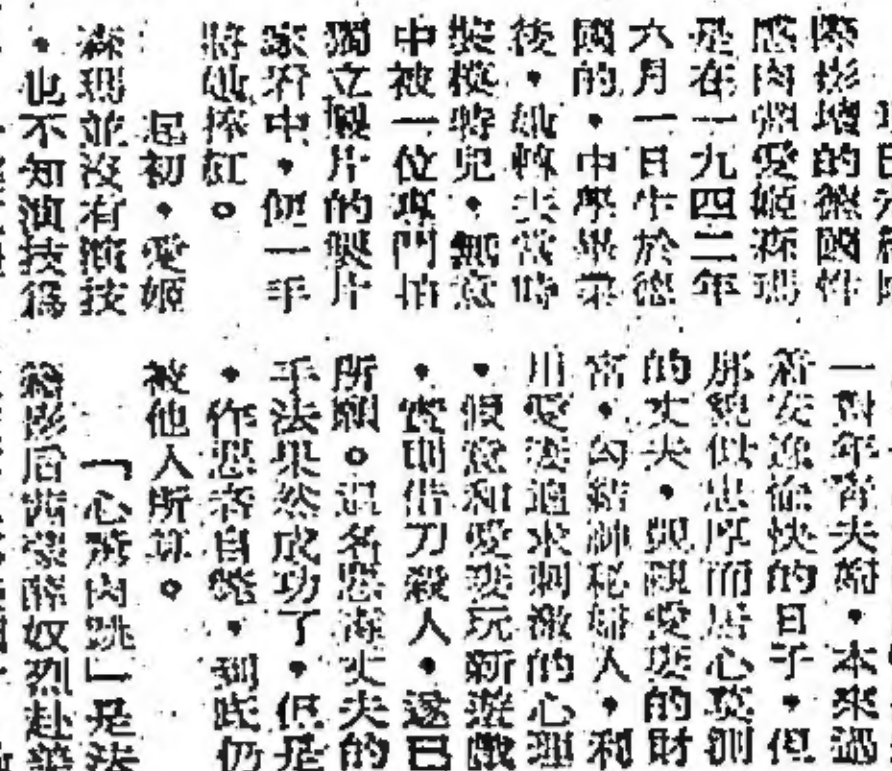 際影壇的德國性
感肉彈愛姬森瑪
是在一九四二年
六月一日生於德
國的,中學畢業
後,她轉去當時
裝模特兒,無意
中被一位專門拍
獨立製片的製片
家看中,便一手
將她捧紅。
起初,愛姬
森瑪並沒有演技
,也不知演技為
一對年青夫婦,本來過
著安逸愉快的日子,但
那貌似忠厚而居心叵測
的丈夫,覬覦愛妻的財
富,勾結神秘婦人,利
用愛妻追求刺激的心理
,假意和愛妻玩新遊戲
,實則借刀殺人,遂已
所願。這名惡毒丈夫的
手法果然成功了,但是
,作惡者自斃,到此仍
被他人所算。
「心驚肉跳」是法
籍影后茜蒙薛奴烈赴美